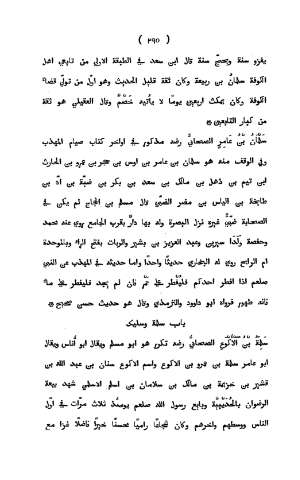 ( ٢٩٥ )
يغزو سنة ويحجّ سنة قال ابن سعد في الطبقة الاولى من تابعى اهل
الكوفة سلمانُ بن ربيعة وكان ثقة قليل الحديث وهو اوّل من تولّى قضاء
الكوفة وكان يمكث اربعين يومًا لا يأتيه خَصْمٌ وقال العقيلى هو ثقة
من كبار التابعين
سَلْمَانُ بْنُ عَامِرٍ الصحابيُّ رضه مذكور في اواخر كتاب صيام المهذب
وفى الوقف منه هو سلمان بن عامر بن اوس بن حجر بن عمرو بن الحارث
ابن تيم بن ذهل بن مالك بن سعد بن بكر بن ضبّة بن ادّ بن
طابخة بن الياس بن مضر الضبّى قال مسلم بن الحجاج لم يكن في
الصحابة ضبّىٌّ غيره نزل البصرة وله بها دار بقرب الجامع روى عنه محمد
وحفصة ولدا سيرين وعبد العزيز بن بشير والرباب بفتح الراء وبالموحدة
ام الرايح روى له البخارى حديثًا واحدا واما حديثه في المهذب عن النبى
صلعم اذا افطر احدكم فليُفطر على تَمْر فان لم يجد فليفطر على ماء
فانه طهور فرواه ابو داود والترمذى وقال هو حديث حسن صحيح
باب سلمة وسليك
سَلَمَةُ بْنُ الاَكْوَعِ الصحابىّ رضه تكرر هو ابو مسلم ويقال ابو أناس ويقال
ابو عامر سلمة بن عمرو بن الاكوع واسم الاكوع سنان بن عبد الله بن
قشير بن خزيمة بن مالك بن سلامان بن اسلم الاسلمى شهد بيعة
الرضوان بالحُدَيْبِية وبايع رسول الله صلعم يومئذ ثلاث مرّات في اوّل
الناس ووسطهم واخرهم وكان شجاعًا راميًا محسنًا خيرًا فاضلًا غزا مع